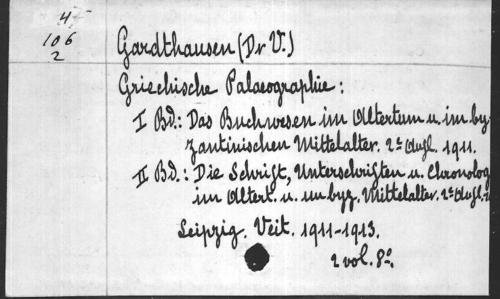 4
106
2
Gardthausen (Dr V.)
Griechische Palaeographie:
I Bd.: Das Buchwesen im Altertum u. im by-
zantinischen Mittelalter. 2e Aufl. 1911.
II Bd.: Die Schrift, Unterschriften u. Chronolog
im Altert. u. im byz. Mittelalter. 2e Aufl.
Leipzig. Veit. 1911-1913.
2 vol. 8o.